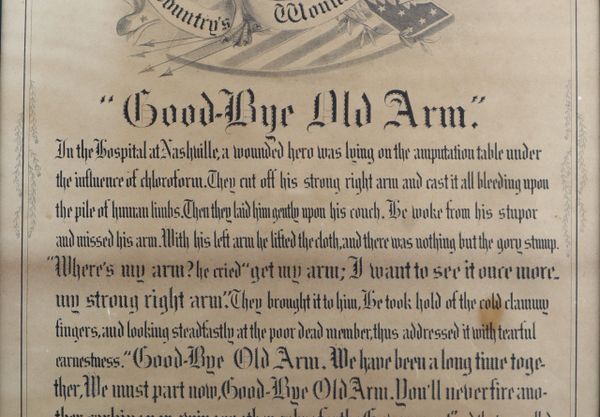 Country's
"Good-Bye Old Arm."
In the Hospital at Nashville, a wounded hero was lying on the amputation table under
the influence of chloroform. They cut off his strong right arm and cast it all bleeding upon
the pile of human limbs. Then they laid him gently upon his couch. He woke from his stupor
and missed his arm. With his left arm he lifted the cloth, and there was nothing but the gory stump.
"Where's my arm? he cried "get my arm; I want to see it once more_
my strong right arm". They brought it to him, He took hold of the cold clammy
fingers, and looking steadfastly at the poor dead member, thus addressed it with tearful
earnestness. "Good-Bye Old Arm. We have been a long time toge-
ther, We must part now, Good-Bye Old Arm. You'll never fire ano-